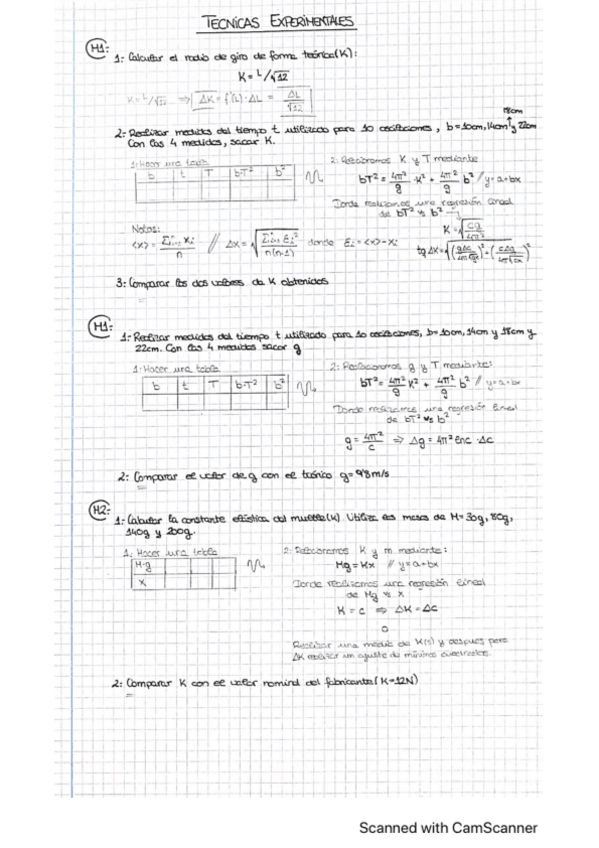 TECNICAS EXPERIMENTALES
H1:
1: Calcular el radio de giro de forma teórica (K):
K = L/√12
K = L/√12 ⇒ ΔK = f'(L)·ΔL = ΔL/√12
18cm
2: Realizar medidas del tiempo t utilizado para 10 oscilaciones, b=10cm, 14cm y 22cm
Con las 4 medidas, sacar K.
1: Hacer una tabla
b t T b·T² b²
2: Relacionamos K y T mediante
bT² = 4π²/g · K² + 4π²/g b² // y=a+bx
Donde realizamos una regresión lineal
de bT² vs b²
Notas:
<x> = Σxi/n // Δx = √(Σεi²/n(n-1)) donde εi = <x> - xi
3: Comparar los dos valores de K obtenidos
H1:
1: Realizar medidas del tiempo t utilizado para 10 oscilaciones, b=10cm, 14cm y 18cm y
22cm. Con las 4 medidas sacar g
1: Hacer una tabla
b t T b·T² b²
2: Relacionamos g y T mediante:
bT² = 4π²/g K² + 4π²/g b² // y=a+bx
Donde realizamos una regresión lineal
de bT² vs b²
g = 4π²/c ⇒ Δg = 4π² lnc · Δc
2: Comparar el valor de g con el teórico g=9'8m/s
H2:
1: Calcular la constante elástica del muelle (K). Utiliza las masas de M=30g, 80g,
140g y 200g.
1: Hacer una tabla
M·g
x
2: Relacionamos K y m mediante:
Mg = Kx // y=a+bx
Donde realizamos una regresión lineal
de Mg vs x
K = c ⇒ ΔK = Δc
o
Realizar una medida de K(s) y después para
ΔK realizar un ajuste de mínimos cuadrados.
2: Comparar K con el valor nominal del fabricante (K=12N)
Scanned with CamScanner